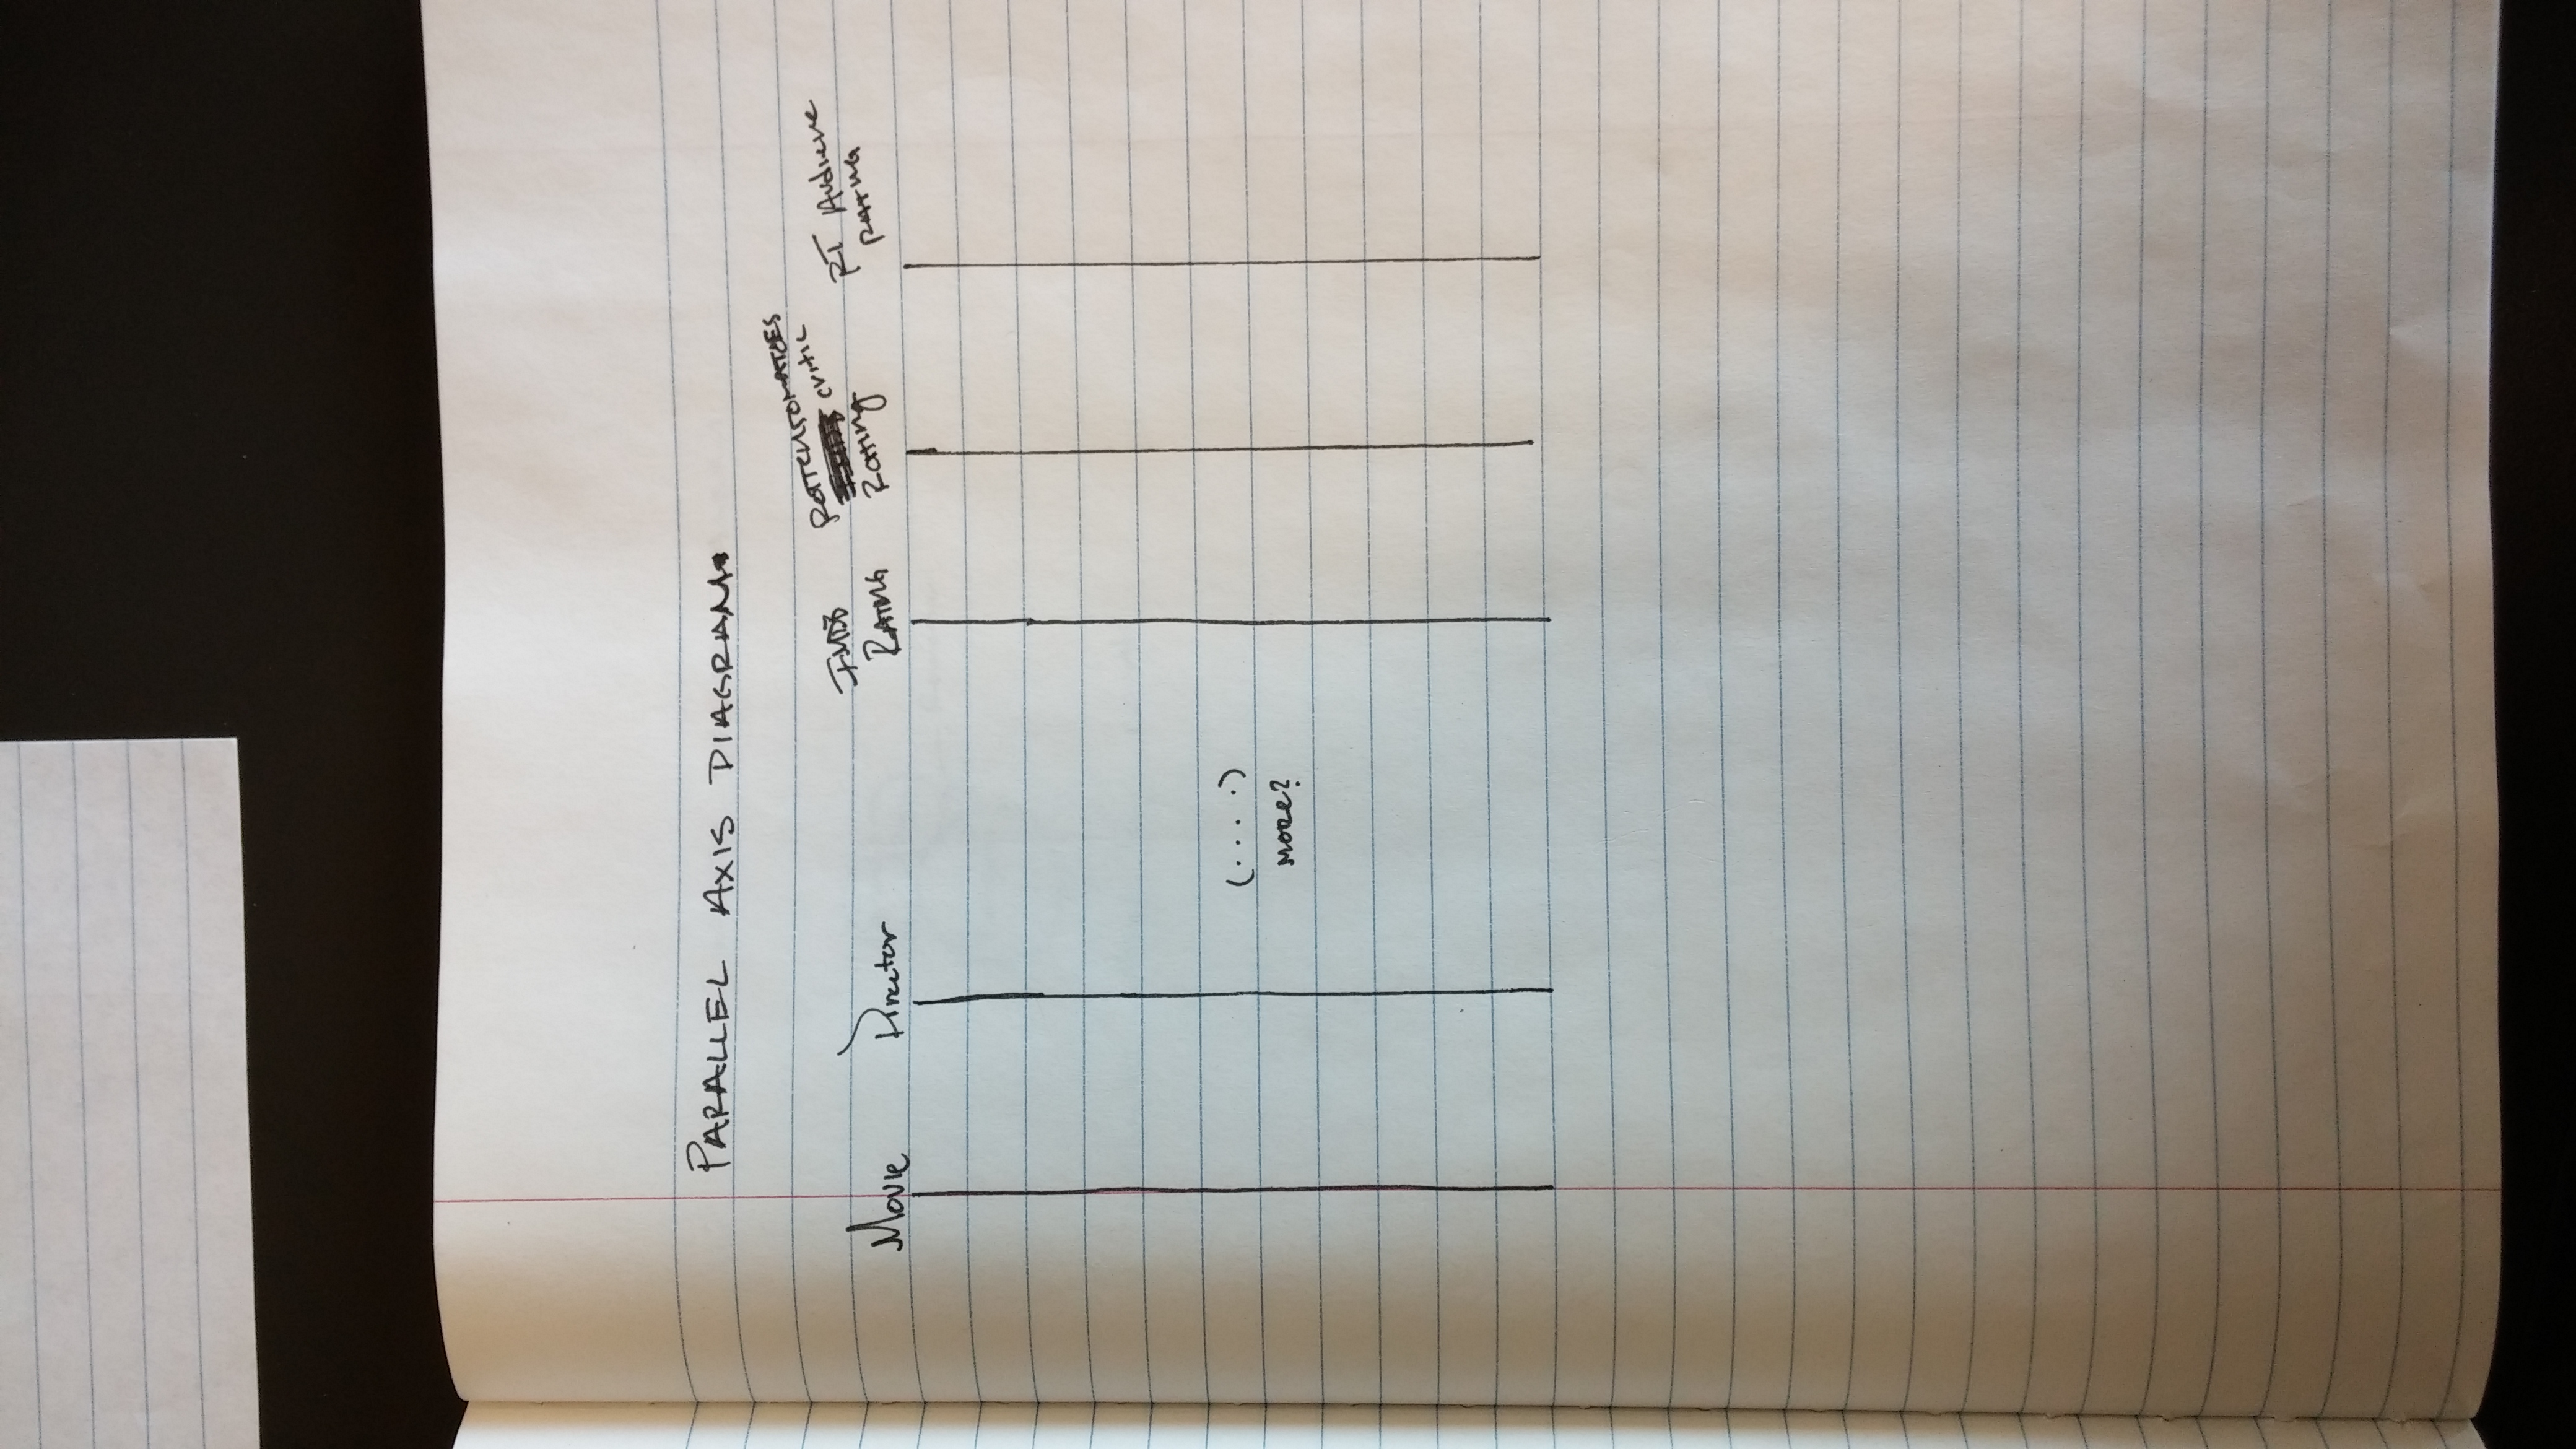 PARALLEL AXIS DIAGRAM
Movie
Director
IMDB
RATING
ROTTENTOMATOES
critic
Rating
RT Audience
RATING
(.....)
MORE?